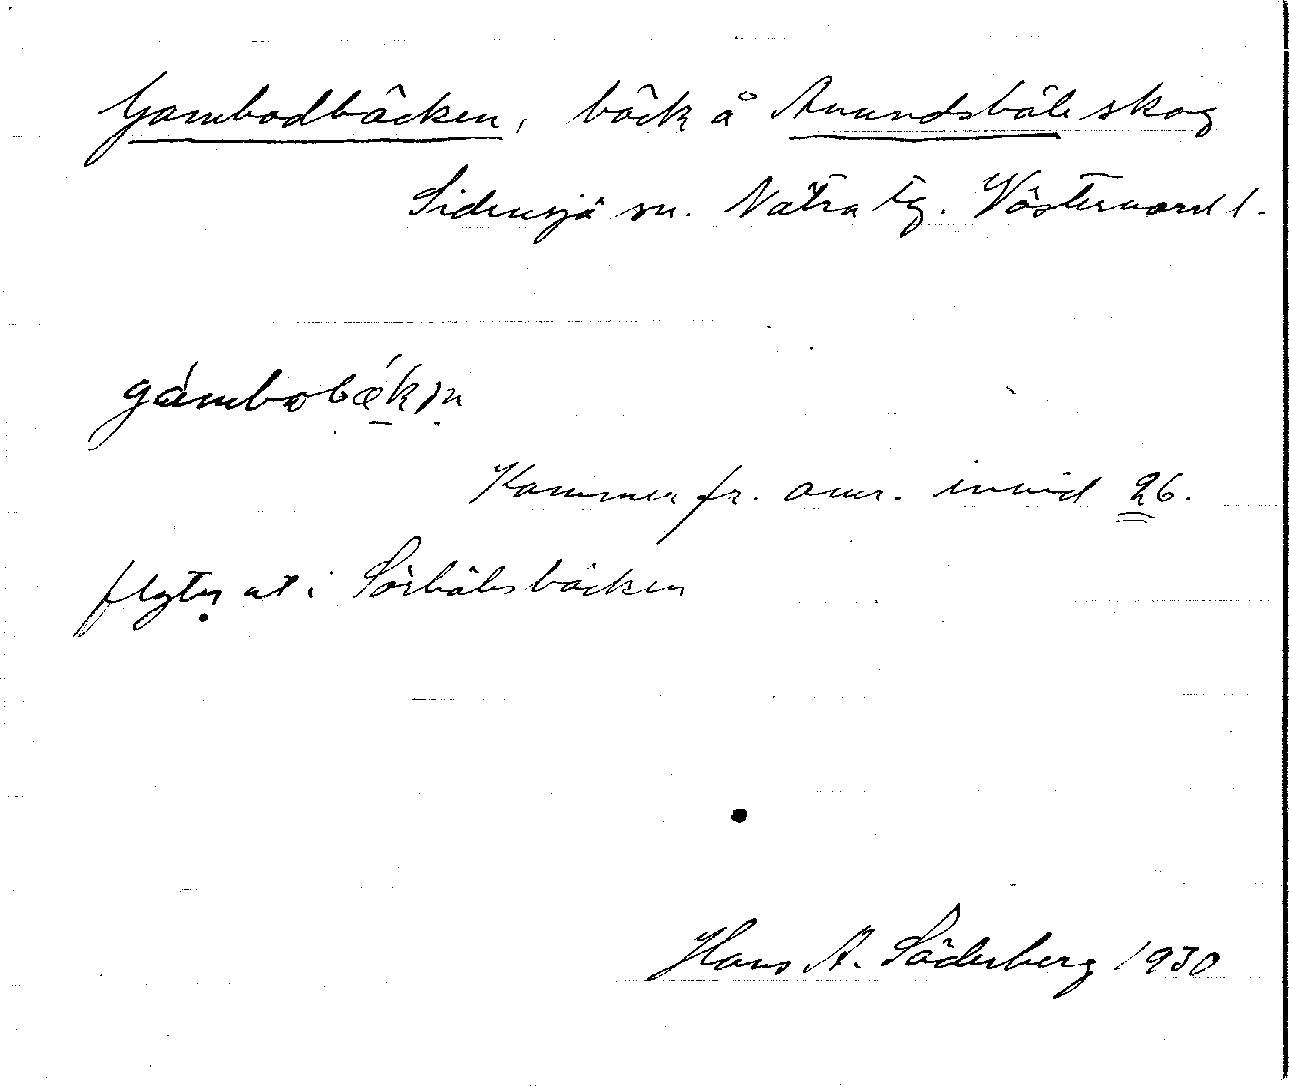 Gambodbäcken, bäck å Anundsböle skog
Sidensjö sn. Nätra tg. Västernorrl.
gámbobǽkın
Kommer fr. omr. invid 26.
flyter ut i Sörbölesbäcken
Hans A. Söderberg 1930